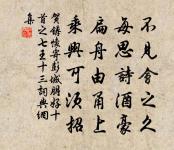 不見會之久
每思詩酒豪
扁舟由甬上
乘興可須招
賀鑄懷寄彭城朋好十
首之七王十三詞典網
集